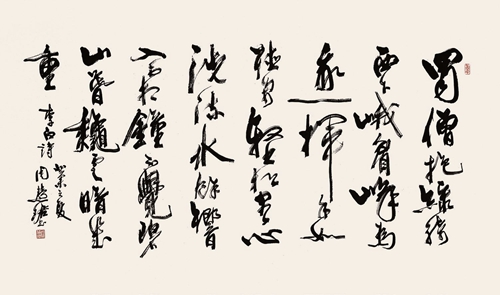 蜀僧抱綠綺
西下峨眉峰為
我一揮手如
聽萬壑松客心
洗流水餘響
入霜鐘不覺碧
山暮穐雲暗幾
重 李白詩
癸未之夏 周